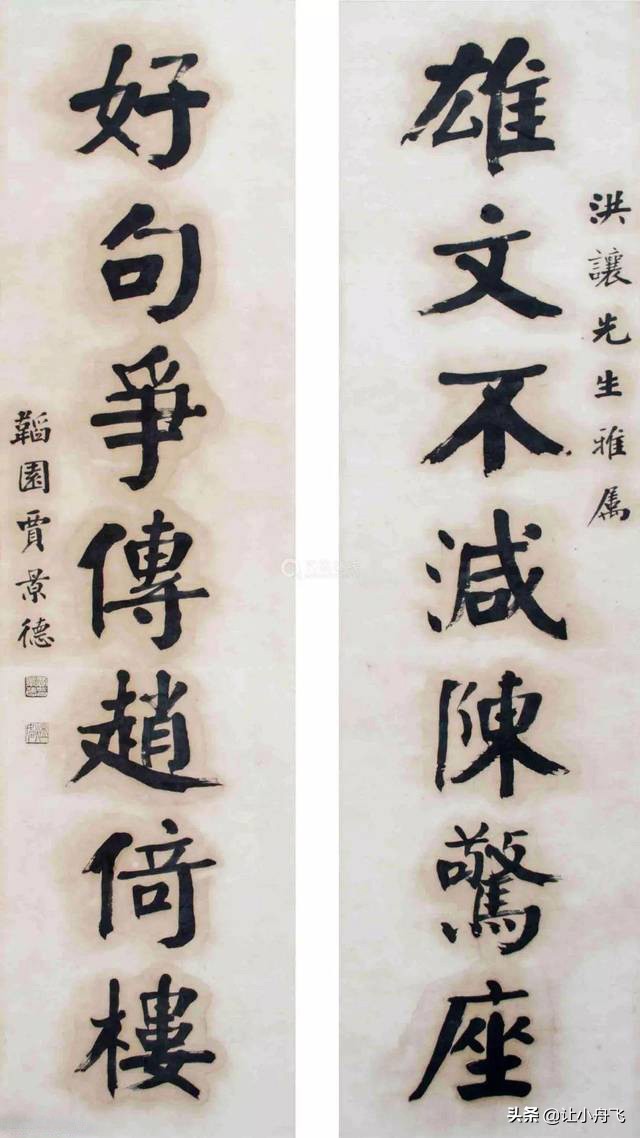 洪讓先生雅属
雄文不減陳驚座
好句爭傳趙倚樓
韜園賈景德
头条 @让小舟飞